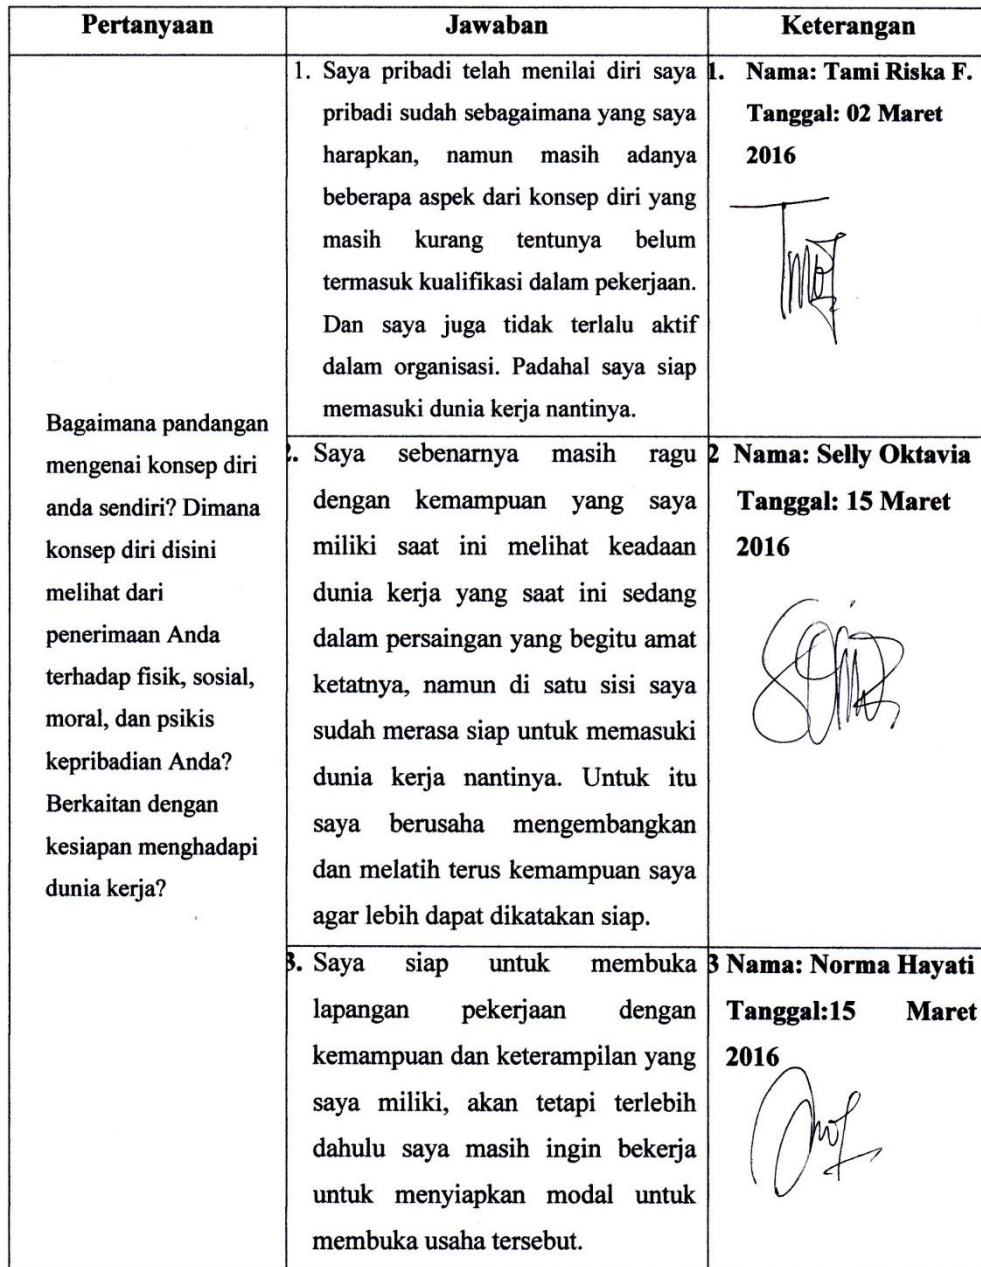 Pertanyaan
Jawaban
Keterangan
Bagaimana pandangan
mengenai konsep diri
anda sendiri? Dimana
konsep diri disini
melihat dari
penerimaan Anda
terhadap fisik, sosial,
moral, dan psikis
kepribadian Anda?
Berkaitan dengan
kesiapan menghadapi
dunia kerja?
1. Saya pribadi telah menilai diri saya
pribadi sudah sebagaimana yang saya
harapkan, namun masih adanya
beberapa aspek dari konsep diri yang
masih kurang tentunya belum
termasuk kualifikasi dalam pekerjaan.
Dan saya juga tidak terlalu aktif
dalam organisasi. Padahal saya siap
memasuki dunia kerja nantinya.
1. Nama: Tami Riska F.
Tanggal: 02 Maret
2016
2. Saya sebenarnya masih ragu
dengan kemampuan yang saya
miliki saat ini melihat keadaan
dunia kerja yang saat ini sedang
dalam persaingan yang begitu amat
ketatnya, namun di satu sisi saya
sudah merasa siap untuk memasuki
dunia kerja nantinya. Untuk itu
saya berusaha mengembangkan
dan melatih terus kemampuan saya
agar lebih dapat dikatakan siap.
2 Nama: Selly Oktavia
Tanggal: 15 Maret
2016
3. Saya siap untuk membuka
lapangan pekerjaan dengan
kemampuan dan keterampilan yang
saya miliki, akan tetapi terlebih
dahulu saya masih ingin bekerja
untuk menyiapkan modal untuk
membuka usaha tersebut.
3 Nama: Norma Hayati
Tanggal:15 Maret
2016